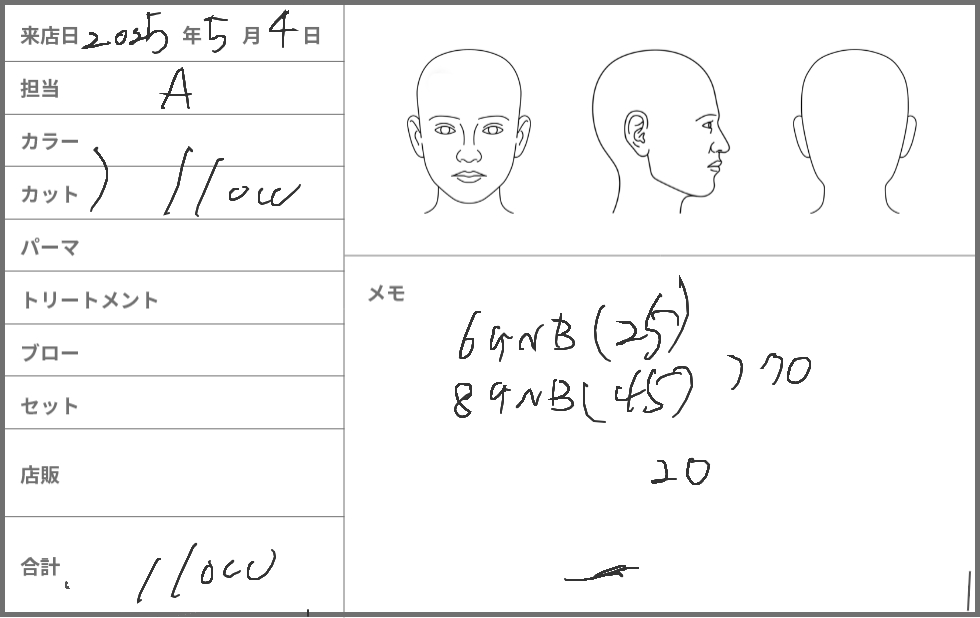 来店日 2025 年 5 月 4 日
担当 A
カラー
カット ) 11000
パーマ
トリートメント
ブロー
セット
店販
合計 11000
メモ
6GNB (25)
8GNB (45) ) 70
20